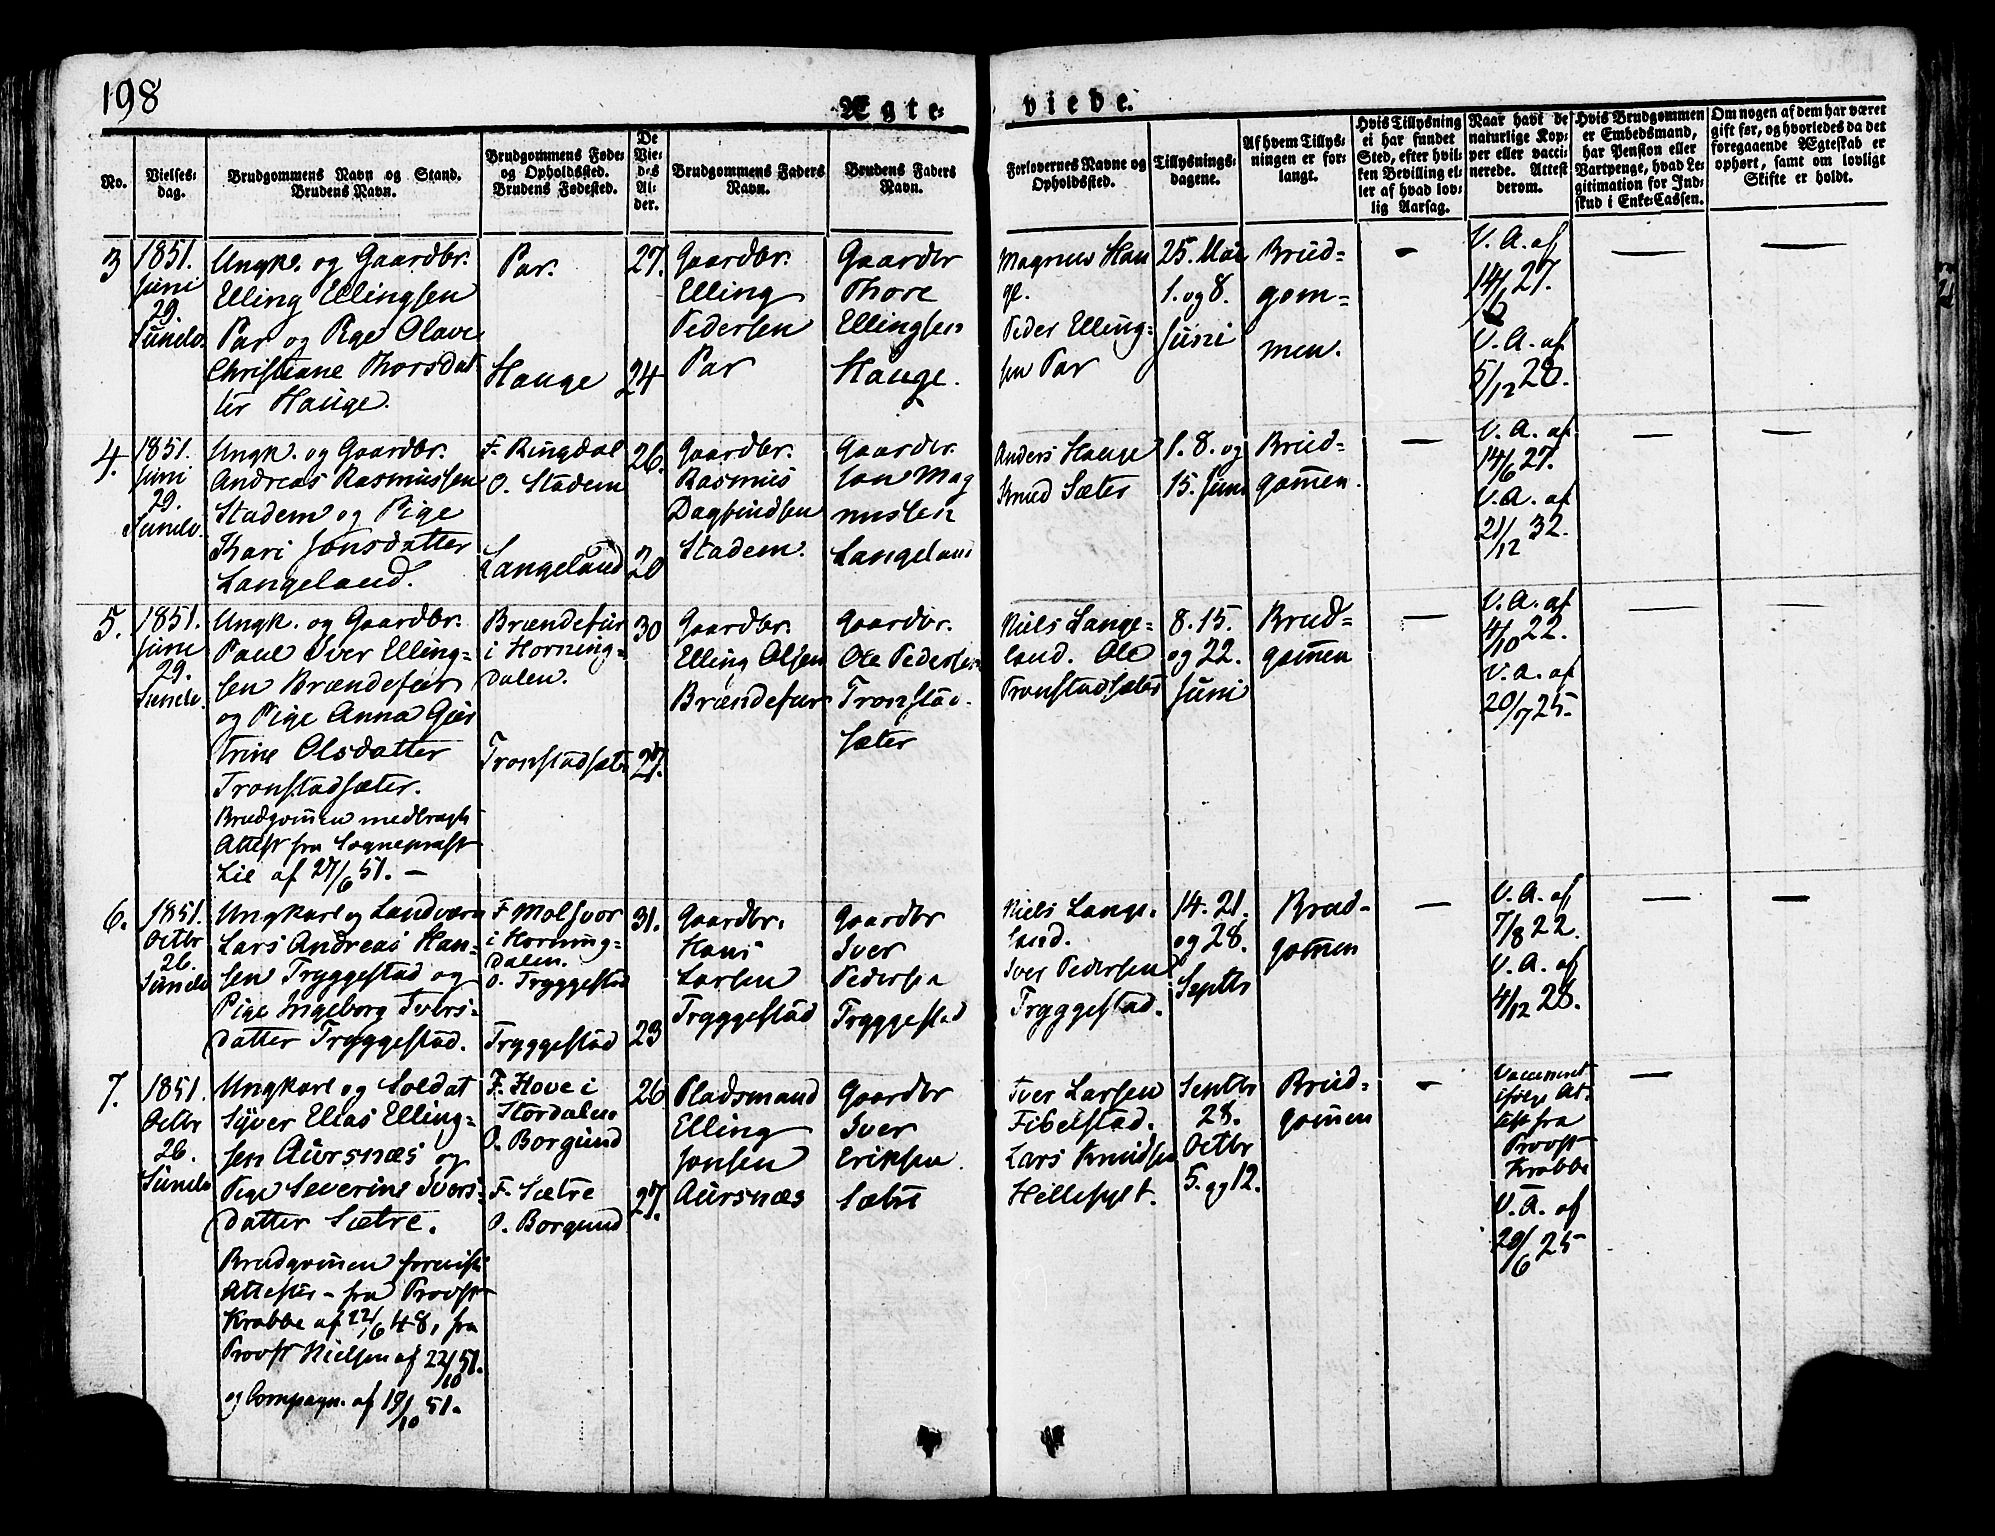 198
Ægte- viede.
No.
Vielses-
dag.
Brudgommens Navn og Stand.
Brudens Navn.
Brudgommens Føde-
og Opholdssted.
Brudens Fødested.
De
Vie-
des
Al-
der.
Brudgommens Faders
Navn.
Brudens Faders
Navn.
Forlovernes Navne og
Opholdssted.
Tillysnings-
dagene.
Af hvem Tillys-
ningen er for-
langt.
Hvis Tillysning
ei har fundet
Sted, efter hvil-
ken Bevilling el-
ler af hvad lov-
lig Aarsag.
Naar havt de
naturlige Kop-
per eller vacci-
nerede. Attest
derom.
Hvis Brudgommen
er Embedsmand,
har Pension eller
Vartpenge, hvad Le-
gitimation for Ind-
skud i Enke-Cassen.
Om nogen af dem har været
gift før, og hvorledes da det
foregaaende Ægteskab er
ophørt, samt om lovligt
Skifte er holdt.
3
1851.
Juni
29.
Sunelv.
Ungk. og Gaardbr.
Elling Ellingsen
Par og Pige Olave
Christiane Thorsdat
ter Hauge.
Par.
Hauge
27.
24
Gaardbr.
Elling
Pedersen
Par
Gaardbr
Thore
Ellingsen
Hauge.
Magnus Hau
ge.
Peder Elling-
sen Par
25. Mai
1. og 8.
Juni
Brud-
gom-
men.
-
V. A. af
14/6 27.
V. A. af
5/12 28.
—
—
4.
1851.
Juni
29.
Sunelv.
Ungk. og Gaardbr.
Andreas Rasmussen
Stadem og Pige
Kari Jonsdatter
Langeland.
F. Ringdal
O. Stadem
Langeland
26.
20
Gaardbr.
Rasmus
Dagfindsen
Stadem.
Gaardbr.
Jon Mag
nussen
Langeland
Anders Hauge
Knud Sæter
1. 8. og
15. Juni
Brud-
gomen.
—
V. A. af
14/6 27.
V. A. af
21/12 32.
—
—
5.
1851.
Juni
29.
Sunelv.
Ungk. og Gaardbr.
Paul Iver Elling-
sen Brændefur
og Pige Anna Gjer
trine Olsdatter
Tronstadsæter.
Brudgomen medbragte
Attest fra Sognepræst
Lie af 27/6 51. —
Brændefur
i Horning-
dalen.
Tronstadsæter
30
27.
Gaardbr.
Elling Olsen
Brændefur
Gaardbr.
Ole Pedersen
Tronstad-
sæter
Niels Lange-
land. Ole
Tronstadsæter
8. 15.
og 22.
Juni
Brud-
gomen
—
V. A. af
4/10 22.
V. A. af
20/7 25.
—
—
6.
1851.
Octbr
26.
Sunelv
Ungkarl og Landværn
Lars Andreas Han-
sen Tryggestad og
Pige Ingeborg Ivers-
datter Tryggestad.
F. Molsvor
i Horning-
dalen.
O. Tryggestad
Tryggestad
31.
23
Gaardbr.
Hans
Larsen
Tryggestad
Gaardbr
Iver
Pedersen
Tryggestad
Niels Lange-
land.
Iver Pedersen
Tryggestad.
14. 21.
og 28.
Septbr
Brud-
gomen
—
V. A. af
7/8 22.
V. A. af
4/12 28.
—
—
7.
1851.
Octbr
26.
Sunelv
Ungkarl og Soldat
Syver Elias Elling-
sen Aursnæs og
Pige Severine Ivers-
datter Sætre.
Brudgomen foreviste
Attester - fra Provst
Krabbe af 22/6 48, fra
Provst Nielsen af 22/10 51.
og Compagn. af 19/10 51.
F. Hove i
Stordalen
O. Borgund
F. Sætre
O. Borgund
26
27.
Pladsmand
Elling
Jonsen
Aursnæs
Gaardbr
Iver
Eriksen.
Sætre
Iver Larsen
Fibelstad.
Lars Knudsen
Hellesylt.
Septbr
28.
Octbr
5. og 12.
Brud-
gomen
-
Vaccineret
ifølge At-
test fra
Provst
Krabbe
V. A. af
20/6 25
—